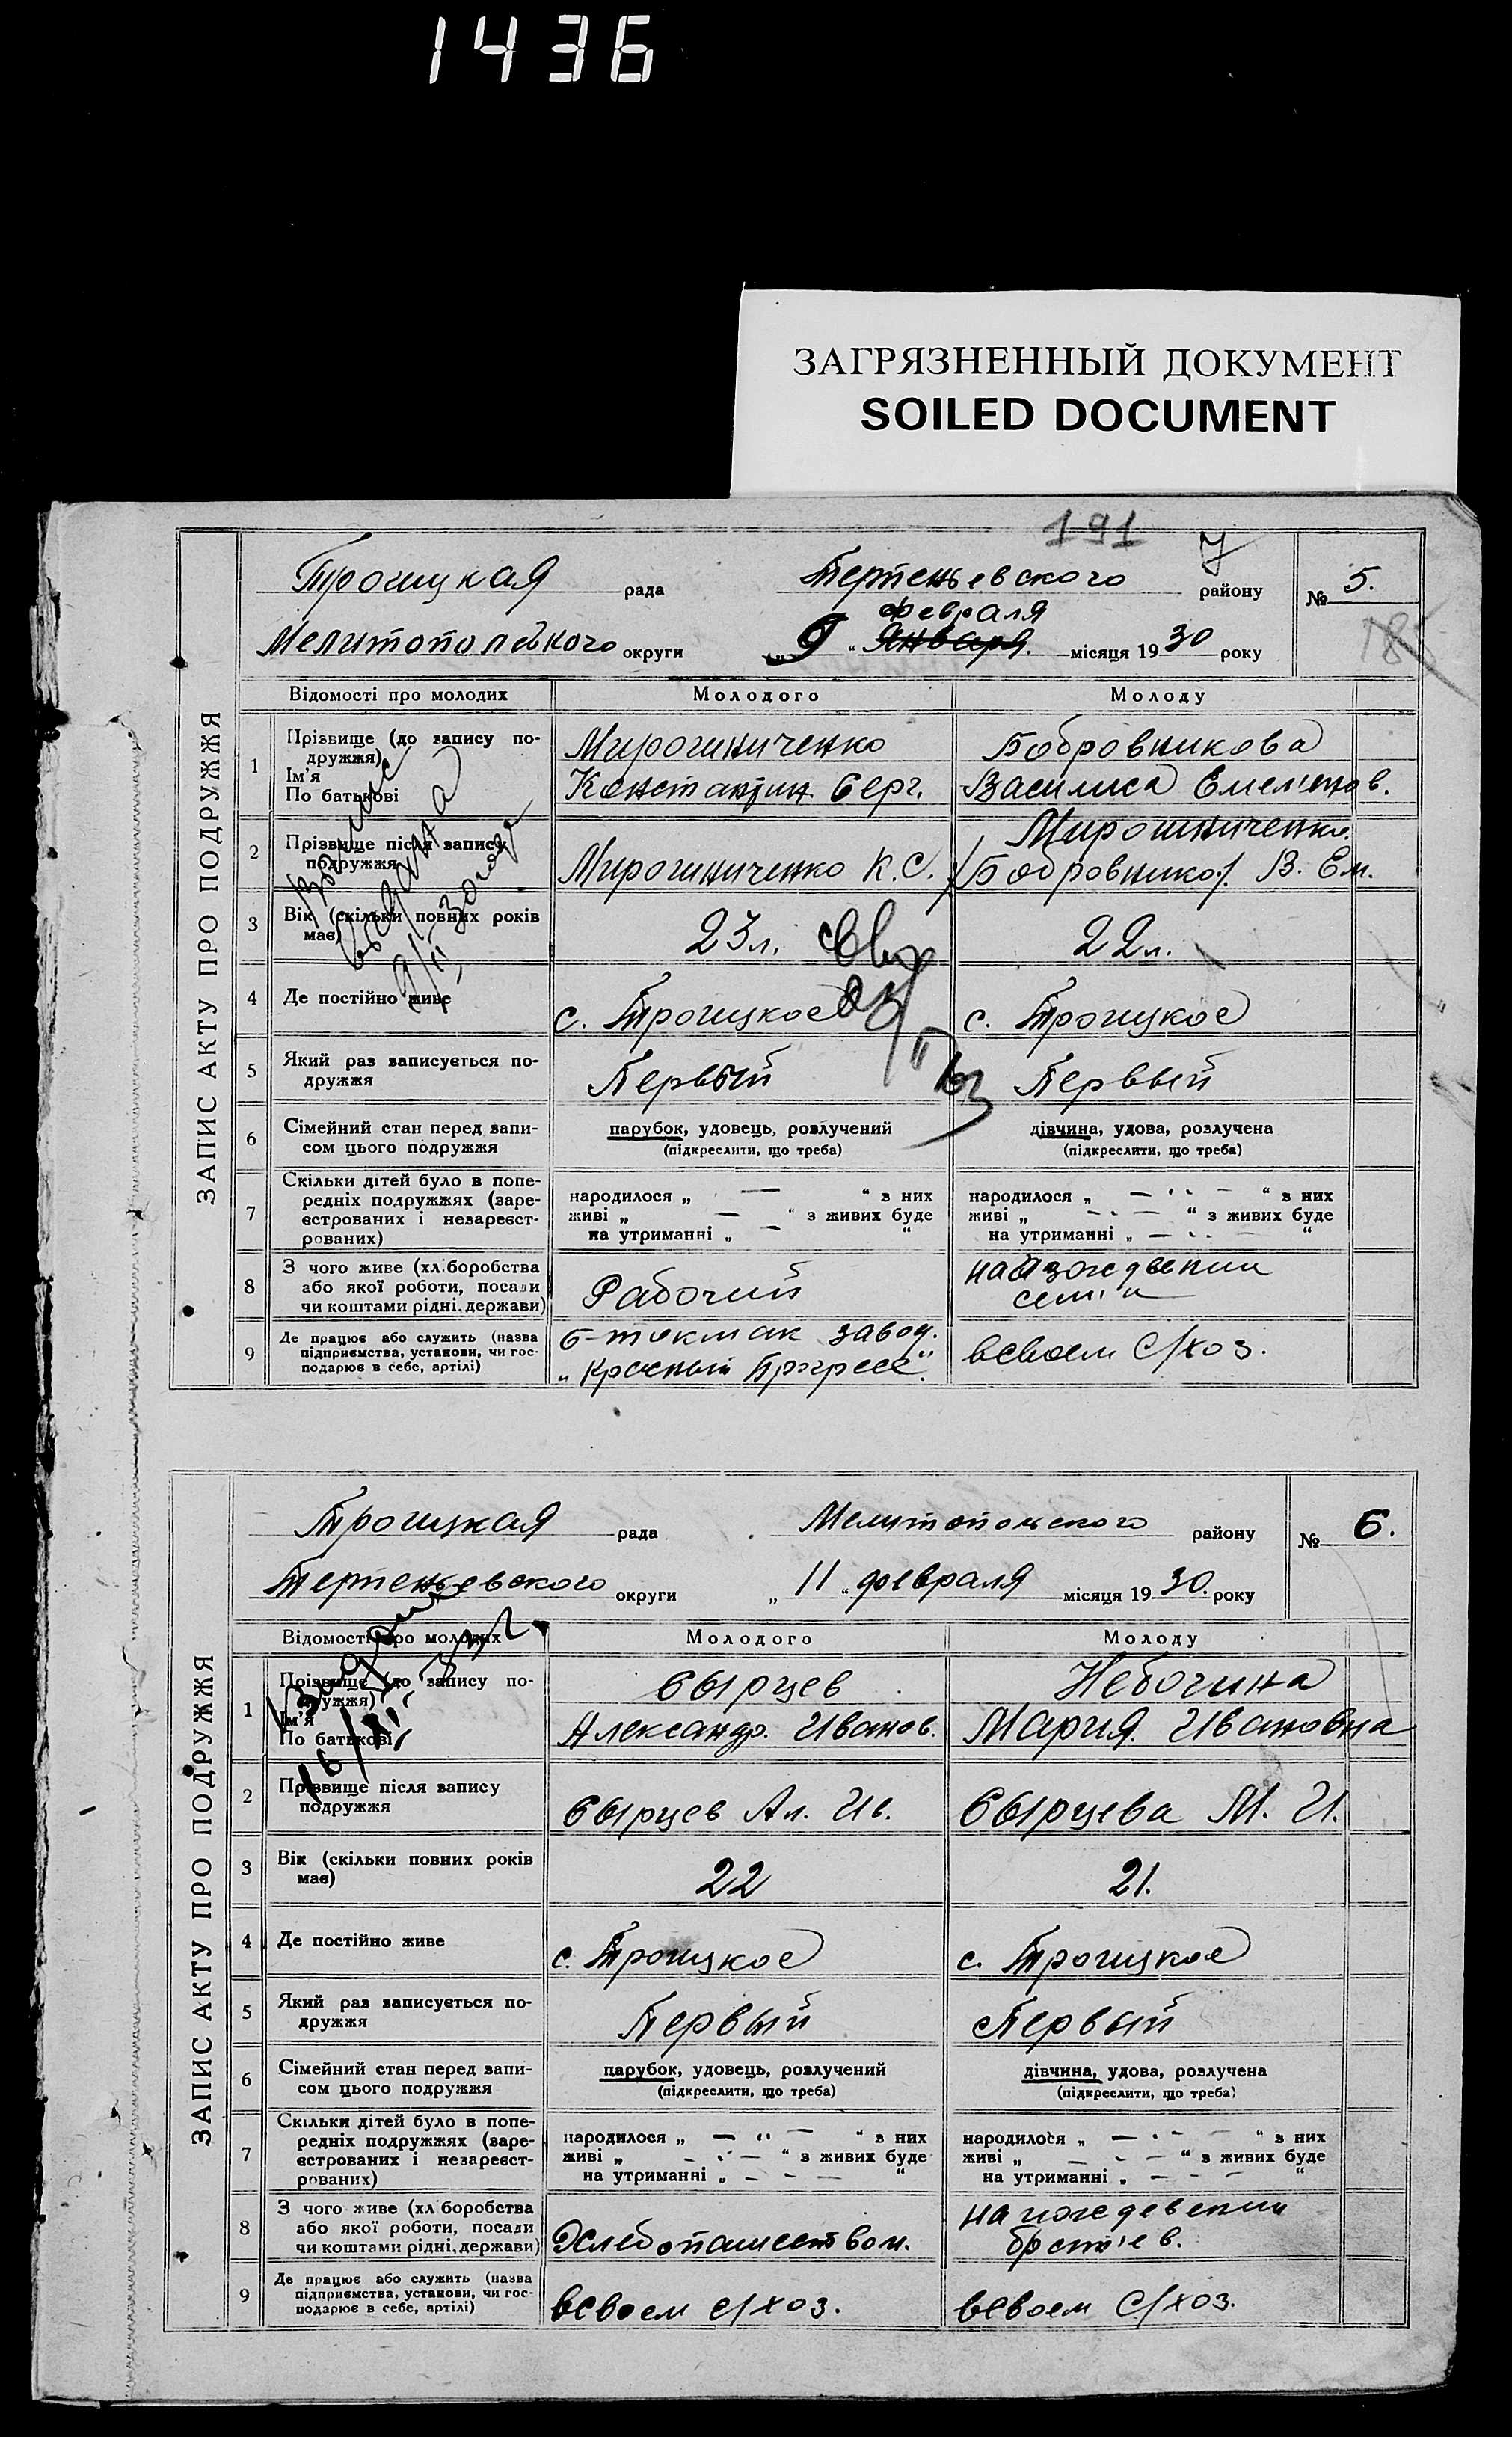 1436
ЗАГРЯЗНЕННЫЙ ДОКУМЕНТ
SOILED DOCUMENT
191
ЗАПИС АКТУ ПРО ПОДРУЖЖЯ
Троицкая рада Терпеньевского району № 5.
февраля
Мелитопольского округи „9“ Января місяця 1930 року
Відомості про молодих Молодого Молоду
1 Прізвище (до запису по-
дружжя)
Ім'я
По батькові
Мирошниченко
Константин Серг.
Бобровникова
Василиса Емельянов.
2 Прізвище після запису
подружжя
Мирошниченко К.С.
Мирошниченко
Бобровников. В. Ем.
3 Вік (скільки повних років
має)
23 л.
22 л.
4 Де постійно живе
с. Троицкое
с. Троицкое
5 Який раз записується по-
дружжя
Первый
Первый
6 Сімейний стан перед запи-
сом цього подружжя
парубок, удовець, розлучений
(підкреслити, що треба)
дівчина, удова, розлучена
(підкреслити, що треба)
7 Скільки дітей було в попе-
редніх подружжях (заре-
єстрованих і незареєст-
рованих)
народилося „ — “ з них
живі „ — “ з живих буде
на утриманні „ — “
народилося „ — “ з них
живі „ — “ з живих буде
на утриманні „ — “
8 З чого живе (хліборобства
або якої роботи, посади
чи коштами рідні, держави)
Рабочий
семьи
9 Де працює або служить (назва
підприємства, установи, чи гос-
подарює в себе, артілі)
Б-токмак завод.
„Красный Прогресс“.
всвоем с/хоз.
ЗАПИС АКТУ ПРО ПОДРУЖЖЯ
Троицкая рада Мелитопольского району № 6.
Терпеньевского округи „11“ февраля місяця 1930. року
Відомості про молодих Молодого Молоду
1 Прізвище (до запису по-
дружжя)
Ім'я
По батькові
Сырцев
Александр. Иванов.
Небогина
Мария. Ивановна
2 Прізвище після запису
подружжя
Сырцев Ал. Ив.
Сырцева М. И.
3 Вік (скільки повних років
має)
22
21.
4 Де постійно живе
с. Троицкое
с. Троицкое
5 Який раз записується по-
дружжя
Первый
Первый
6 Сімейний стан перед запи-
сом цього подружжя
парубок, удовець, розлучений
(підкреслити, що треба)
дівчина, удова, розлучена
(підкреслити, що треба)
7 Скільки дітей було в попе-
редніх подружжях (заре-
єстрованих і незареєст-
рованих)
народилося „ — “ з них
живі „ — “ з живих буде
на утриманні „ — “
народилося „ — “ з них
живі „ — “ з живих буде
на утриманні „ — “
8 З чого живе (хліборобства
або якої роботи, посади
чи коштами рідні, держави)
Хлебопашеством.
на иждевении
братьев.
9 Де працює або служить (назва
підприємства, установи, чи гос-
подарює в себе, артілі)
всвоем с/хоз.
всвоем с/хоз.